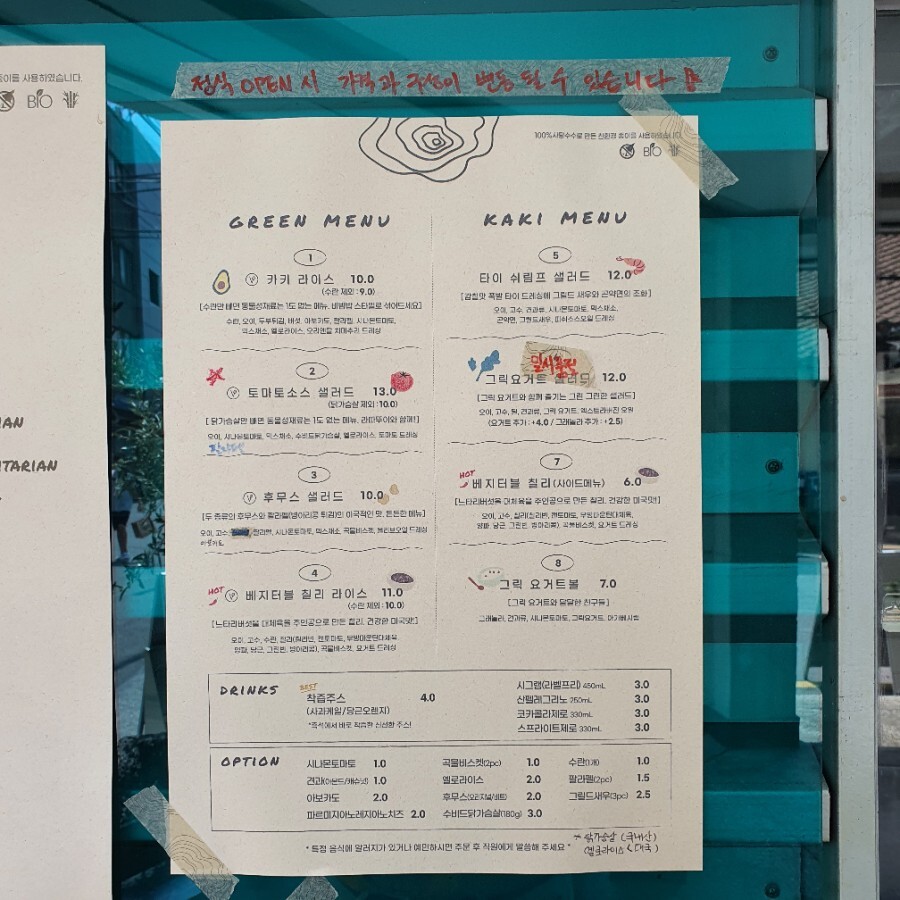 종이를 사용하였습니다.
BIO
AN
TARIAN
정식 OPEN 시 가격과 구성이 변동 될 수 있습니다
100%사탕수수로 만든 친환경 종이를 사용하였습니다.
BIO
GREEN MENU
1
카키 라이스 10.0
(수란 제외 : 9.0)
[수란만 빼면 동물성재료는 1도 없는 메뉴, 비빔밥 스타일로 섞어드세요]
수란, 오이, 두부튀김, 버섯, 아보카도, 팔라펠, 시나몬토마토,
믹스채소, 옐로라이스, 오리엔탈 치미추리 드레싱
2
토마토소스 샐러드 13.0
(닭가슴살 제외 : 10.0)
[닭가슴살만 빼면 동물성재료는 1도 없는 메뉴, 라따뚜이와 함께!]
오이, 시나몬토마토, 믹스채소, 수비드닭가슴살, 옐로라이스, 토마토 드레싱
3
후무스 샐러드 10.0
[두 종류의 후무스와 팔라펠(병아리콩 튀김)의 이국적인 맛, 든든한 메뉴]
오이, 고수, 팔라펠, 시나몬토마토, 믹스채소, 곡물바스켓, 올리브오일 드레싱
아보카도
4
HOT
베지터블 칠리 라이스 11.0
(수란 제외 : 10.0)
[느타리버섯을 대체육을 주인공으로 만든 칠리, 건강한 미국맛!]
오이, 고수, 수란, 칠리(칠리빈, 캔토마토, 무빙마운틴대체육,
양파, 당근, 그린빈, 병아리콩), 곡물바스켓, 요거트 드레싱
KAKI MENU
5
타이 쉬림프 샐러드 12.0
[감칠맛 폭발 타이 드레싱에 그릴드 새우와 곤약면의 조화]
오이, 고수, 견과류, 시나몬토마토, 믹스채소,
곤약면, 그릴드새우, 피쉬소스오일 드레싱
일시품절
그릭요거트 샐러드 12.0
[그릭 요거트와 함께 즐기는 그린 그린한 샐러드]
오이, 고수, 딜, 견과류, 그릭 요거트, 엑스트라버진 오일
(요거트 추가 : +4.0 / 그래놀라 추가 : +2.5)
7
HOT
베지터블 칠리 (사이드메뉴) 6.0
[느타리버섯을 대체육을 주인공으로 만든 칠리, 건강한 미국맛!]
오이, 고수, 칠리(칠리빈, 캔토마토, 무빙마운틴대체육,
양파, 당근, 그린빈, 병아리콩), 곡물바스켓, 요거트 드레싱
8
그릭 요거트볼 7.0
[그릭 요거트와 달달한 친구들]
그래놀라, 견과류, 시나몬토마토, 그릭요거트, 아가베시럽
DRINKS
BEST
착즙주스 4.0
(사과케일/당근오렌지)
*즉석에서 바로 착즙한 신선한 주스!
시그램(라벨프리) 450mL 3.0
산펠레그리노 250mL 3.0
코카콜라제로 330mL 3.0
스프라이트제로 330mL 3.0
OPTION
시나몬토마토 1.0
견과(아몬드/캐슈넛) 1.0
아보카도 2.0
파르미지아노레지아노치즈 2.0
곡물바스켓(2pc) 1.0
옐로라이스 2.0
후무스(오리지널/비트) 2.0
수비드닭가슴살(180g) 3.0
수란(1개) 1.0
팔라펠(2pc) 1.5
그릴드새우(3pc) 2.5
* 닭가슴살 (국내산)
(옐로라이스 < 태국)
* 특정 음식에 알러지가 있거나 예민하시면 주문 후 직원에게 말씀해 주세요 *